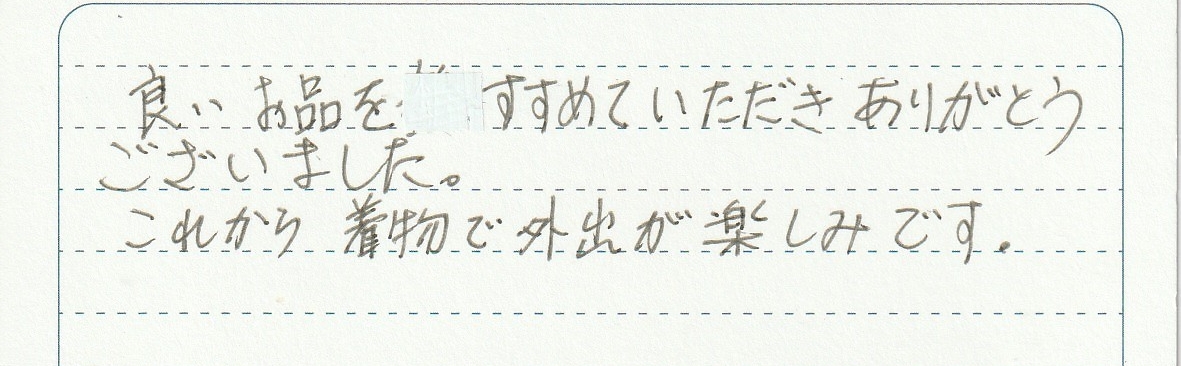 良いお品を すすめていただきありがとう
ございました。
これから着物で外出が楽しみです.